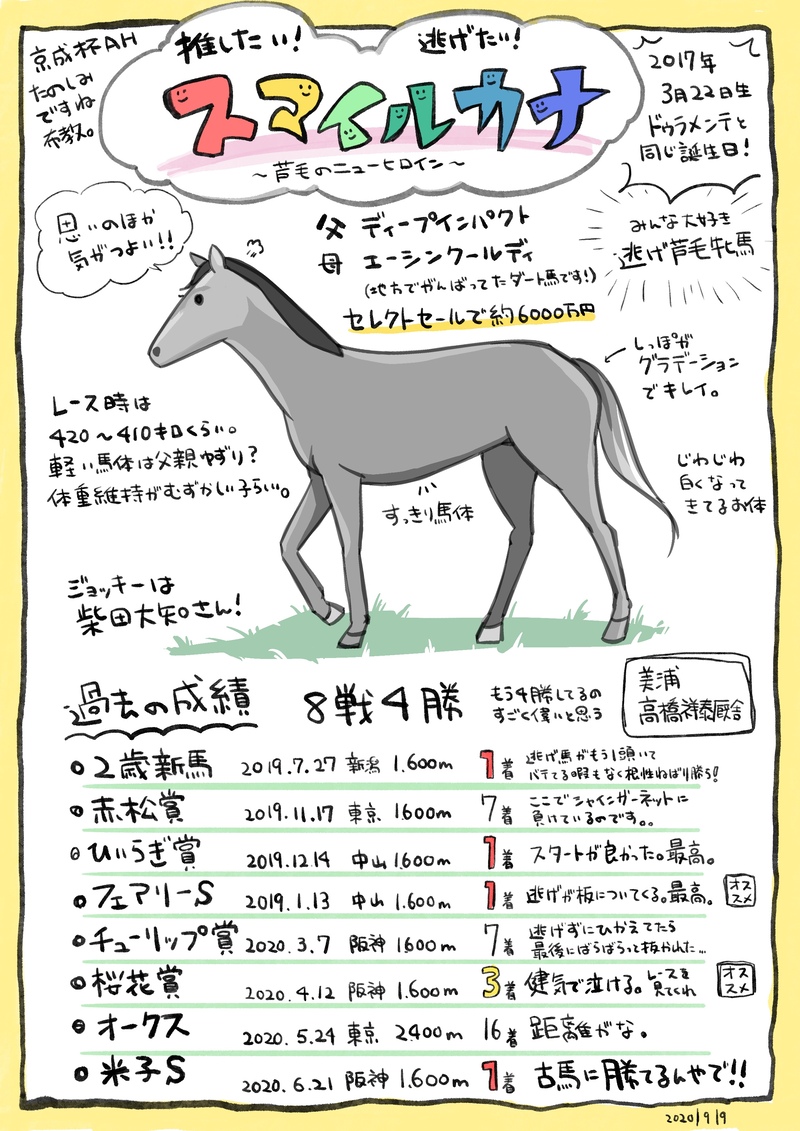 京成杯AH
たのしみ
ですね
布教。
推したい!
逃げたい!
スマイルカナ
~芦毛のニューヒロイン~
2017年
3月22日生
ドゥラメンテと
同じ誕生日!
思いのほか
気がつよい!!
父 ディープインパクト
母 エーシンクールディ
(地方でがんばってたダート馬です!)
セレクトセールで約6000万円
みんな大好き
逃げ芦毛牝馬
しっぽが
グラデーション
でキレイ。
レース時は
420~410キロくらい。
軽い馬体は父親ゆずり?
体重維持がむずかしい子らしい。
すっきり馬体
じわじわ
白くなって
きてるお体
ジョッキーは
柴田大知さん!
過去の成績 8戦4勝
もう4勝してるの
すごく偉いと思う
美浦
高橋祥泰厩舎
2歳新馬 2019.7.27 新潟 1.600m 1着 逃げ馬がもう1頭いて
バテてる暇もなく根性ねばり勝ち!
赤松賞 2019.11.17 東京 1600m 7着 ここでシャインガーネットに
負けているのです。。
ひいらぎ賞 2019.12.14 中山 1.600m 1着 スタートが良かった。最高。
フェアリーS 2019.1.13 中山 1.600m 1着 逃げが板についてくる。最高。 オススメ
チューリップ賞 2020.3.7 阪神 1600m 7着 逃げずにひかえてたら
最後にばらばらって抜かれた…
桜花賞 2020.4.12 阪神 1.600m 3着 健気で泣ける。レースを
見てくれ オススメ
オークス 2020.5.24 東京 2400m 16着 距離がな。
米子S 2020.6.21 阪神 1.600m 1着 古馬に勝てるんやで!!
2020/9/9